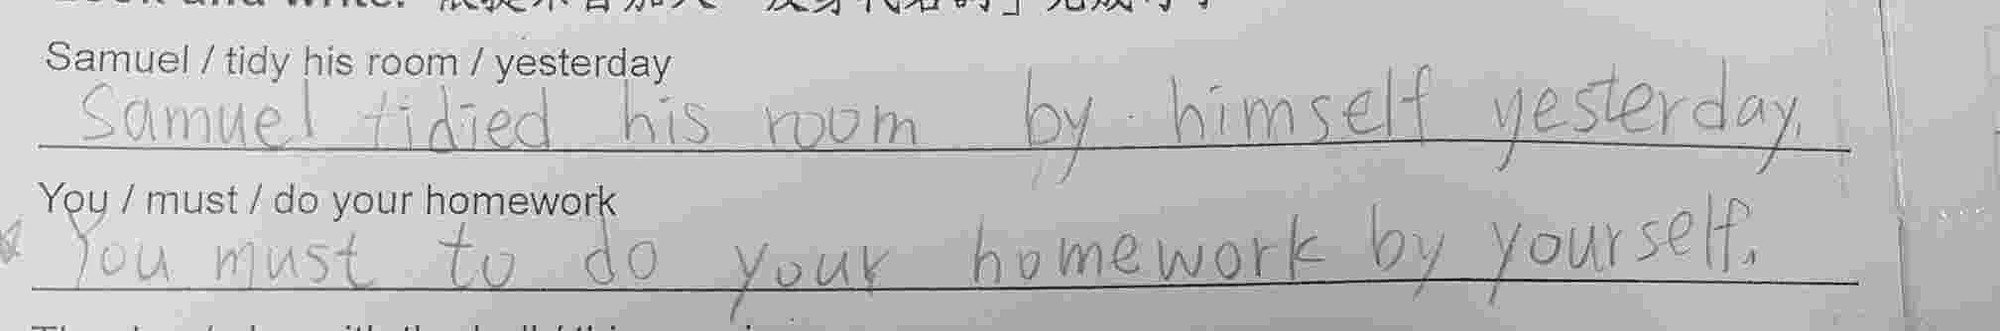 Look and write. 根據提示書加入「反身代名詞」完成句子
Samuel / tidy his room / yesterday
Samuel tidied his room by himself yesterday.
You / must / do your homework
You must to do your homework by yourself.